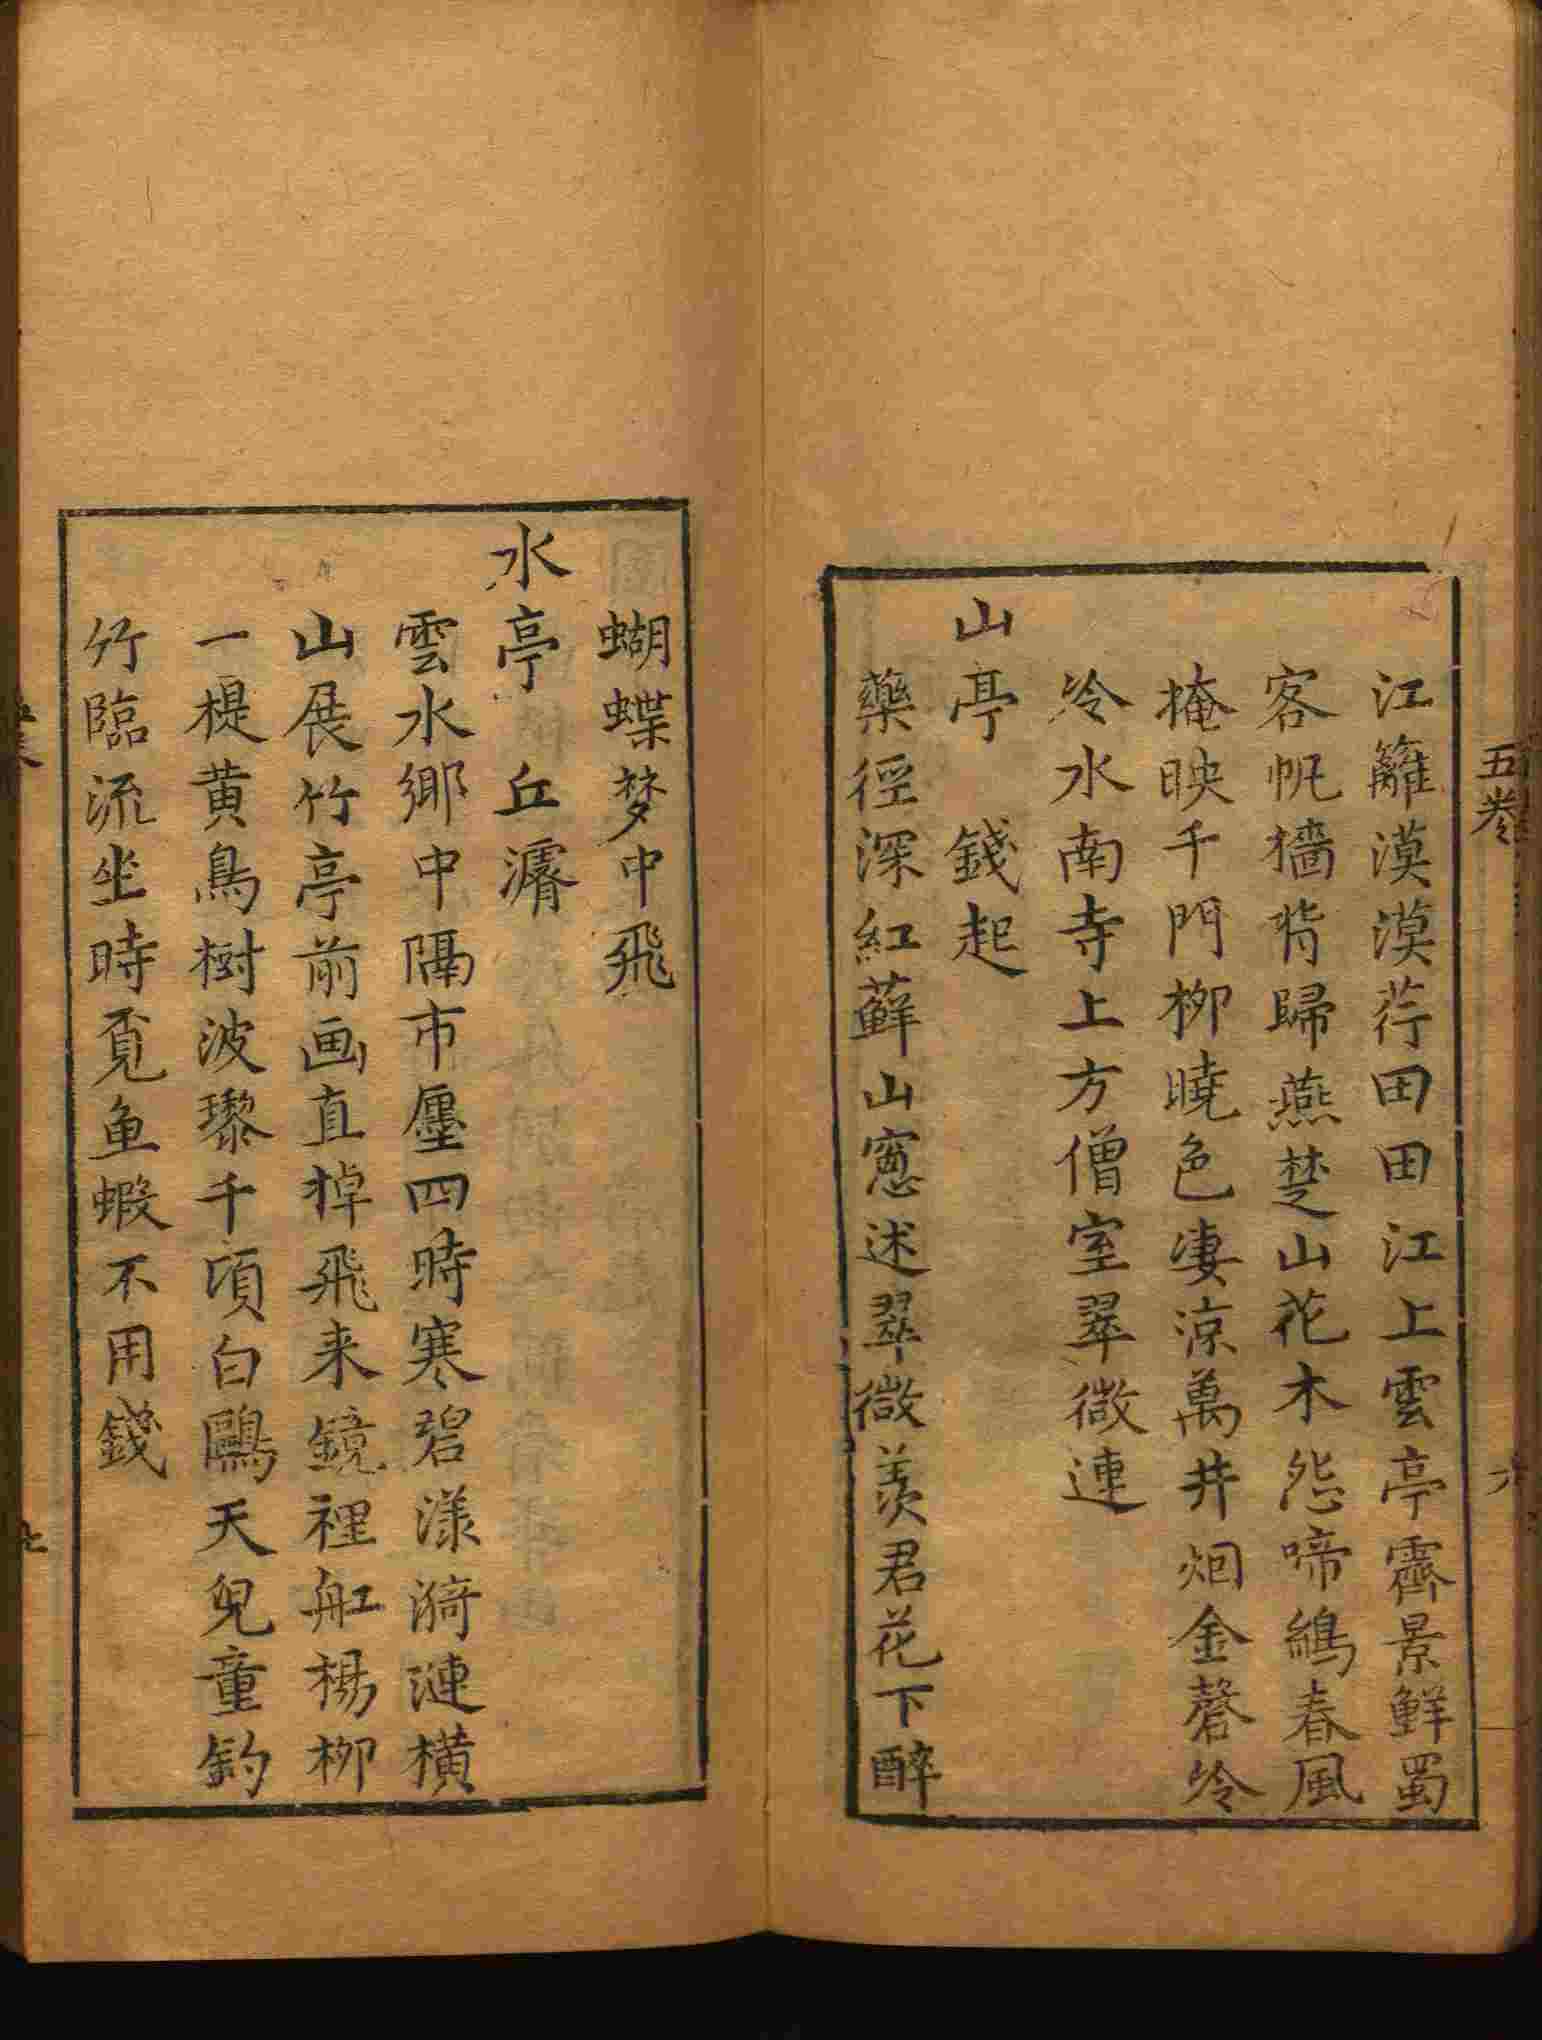 五卷
六
江籬漠漠荇田田江上雲亭霽景鮮蜀
客帆檣背歸燕楚山花木怨啼鵑春風
掩映千門柳曉色淒涼萬井烟金磬冷
冷水南寺上方僧室翠微連
山亭　錢起
藥徑深紅蘚山窓述翠微羨君花下醉
蝴蝶梦中飛
水亭　丘濬
雲水鄉中隔市廛四時寒碧漾漪漣橫
山展竹亭前画直掉飛来鏡裡舡楊柳
一樶黄鳥樹波瓈千頃白鷗天兒童釣
竹臨流坐時覔鱼蝦不用錢
七